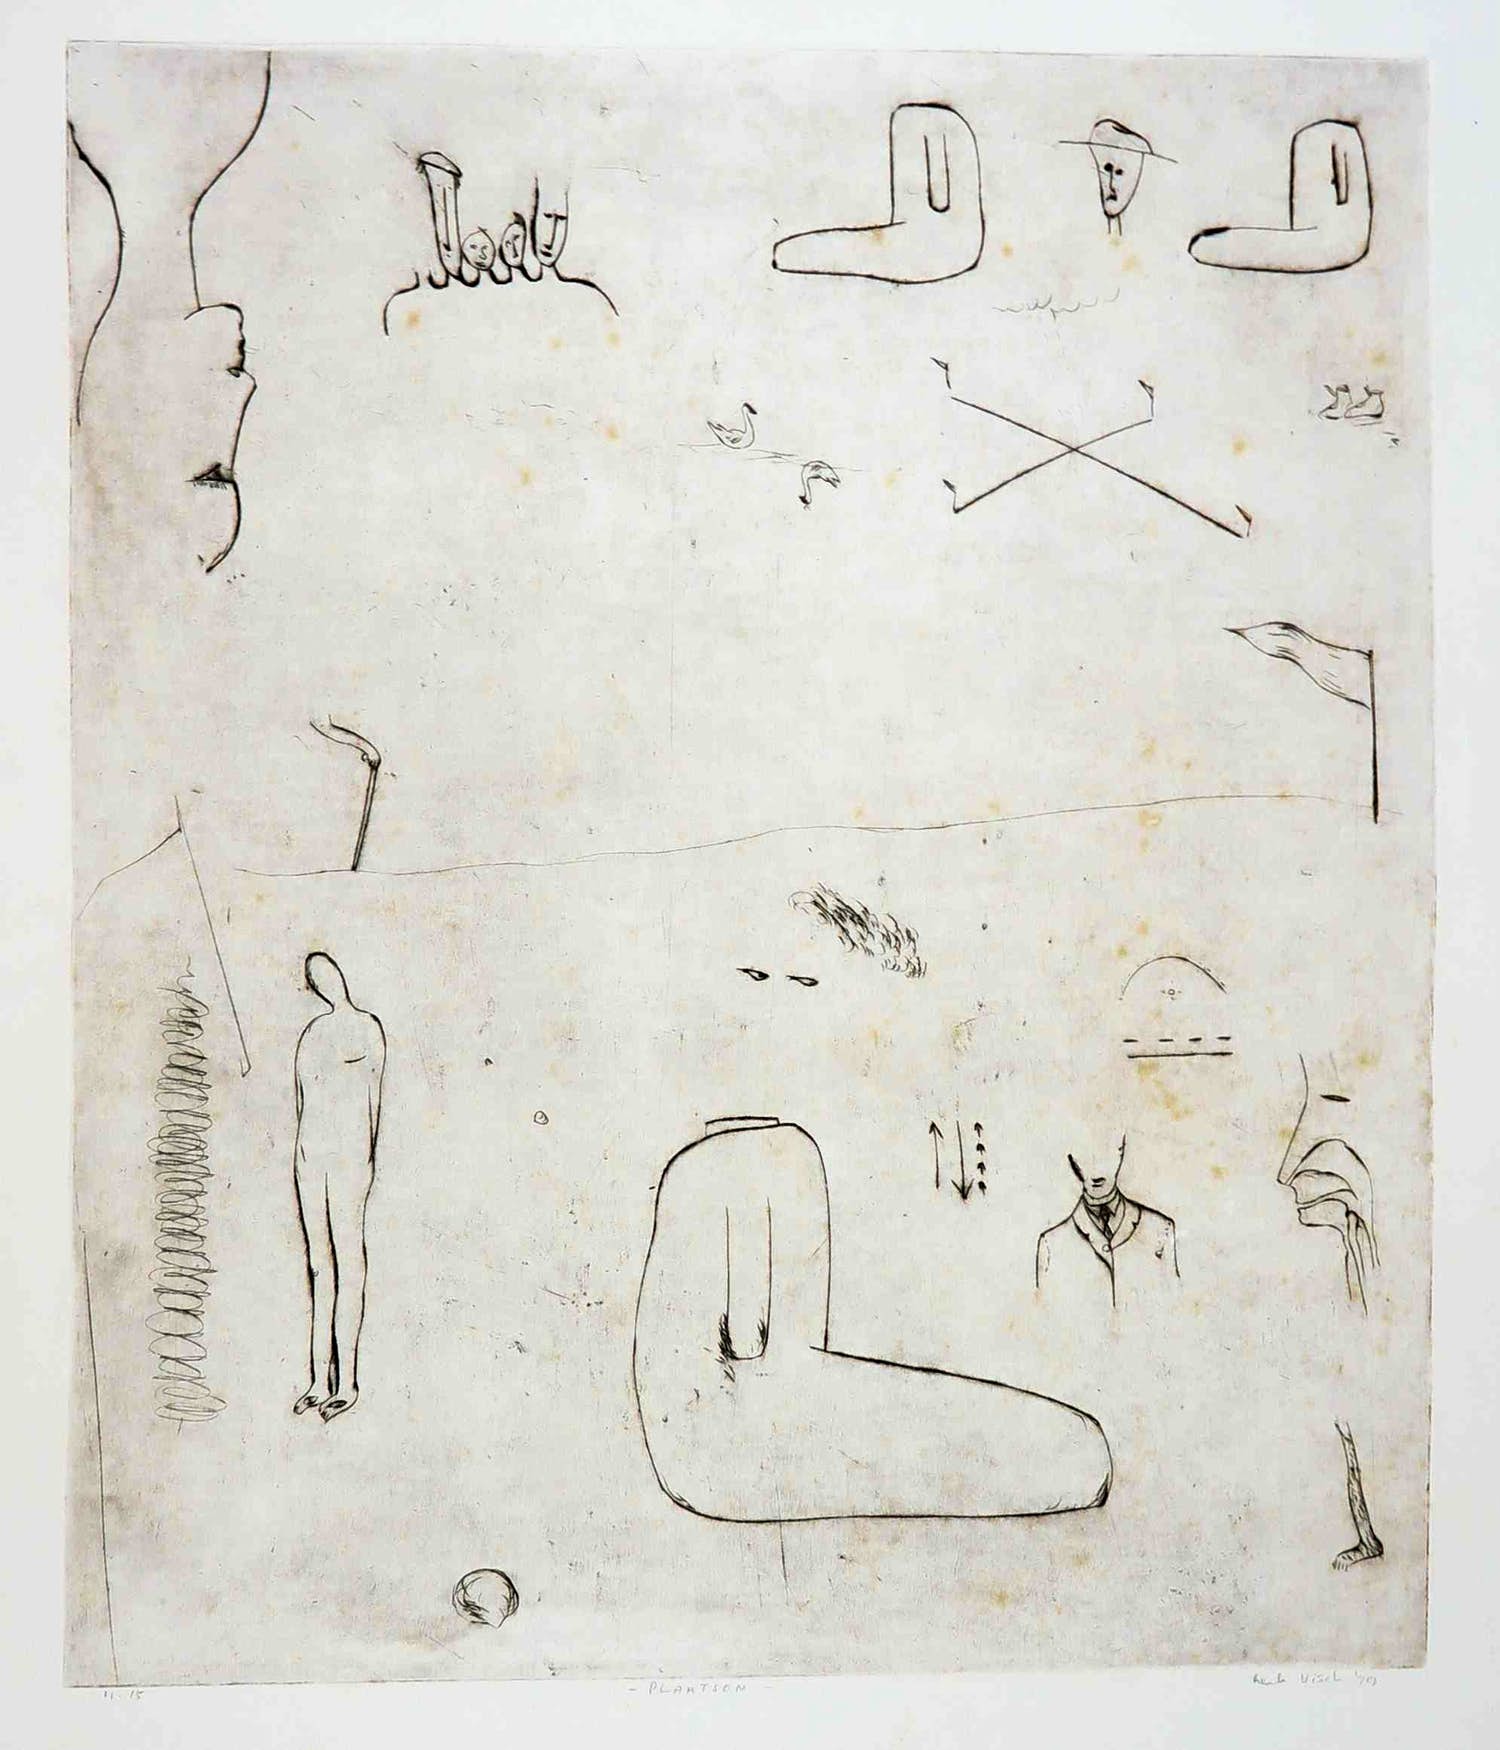 11.15
- PLAATSON -
Henk Visch '90